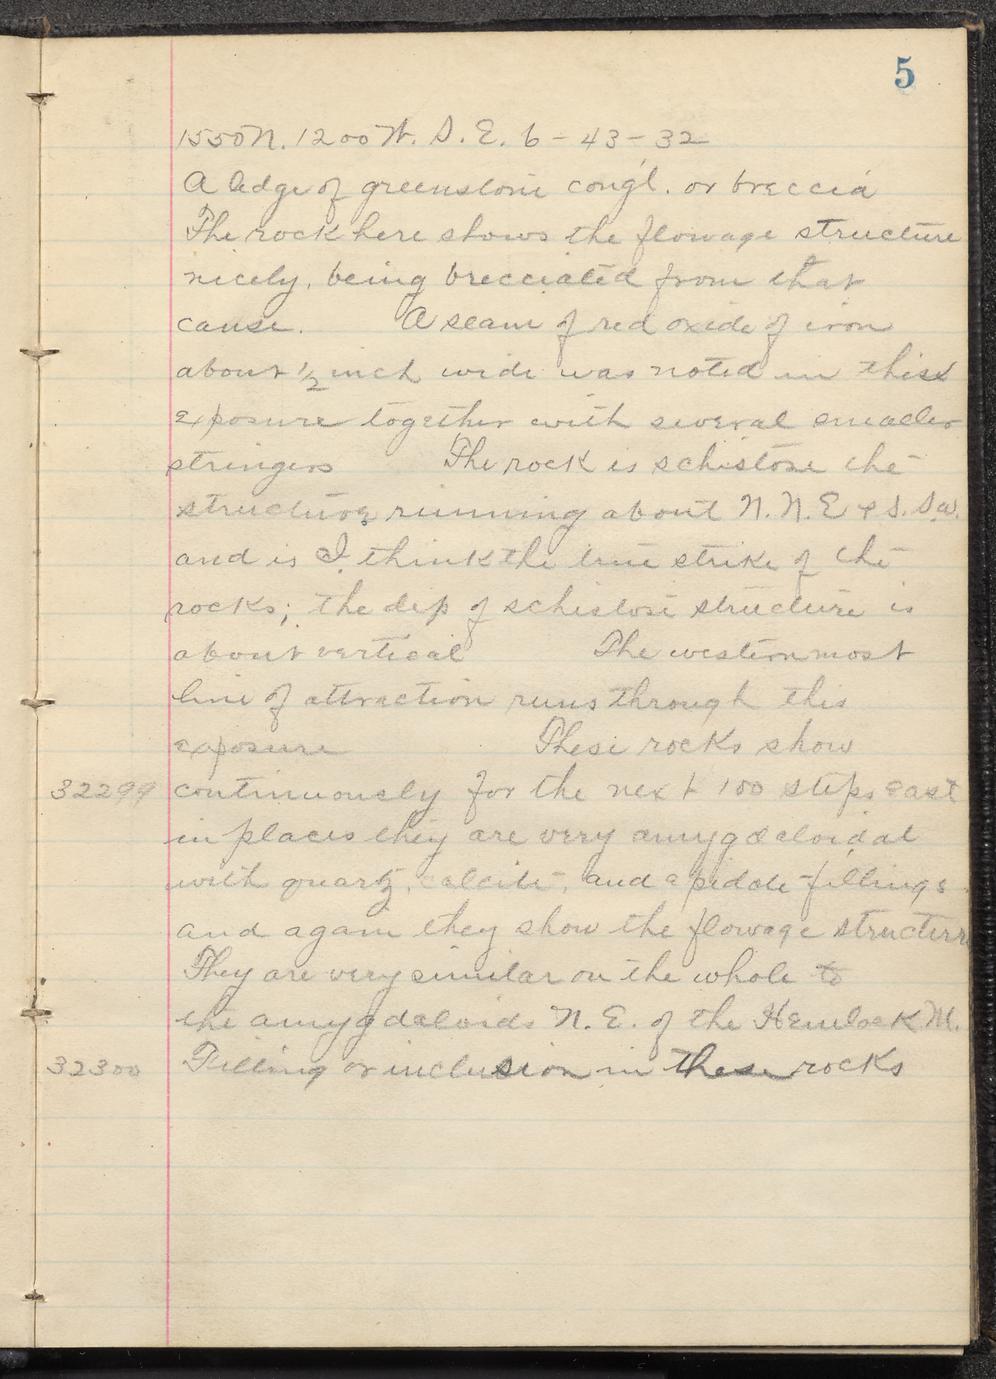 5
1550 N. 1200 W. S. E. 6 - 43 - 32
A ledge of greenstone congl. or breccia
The rock here shows the flowage structure
nicely, being brecciated from that
cause. A seam of red oxide of iron
about 1/2 inch wide was noted in this
exposure together with several smaller
stringers The rock is schistose the
structure running about N. N. E & S. S. W.
and is I think the true strike of the
rocks; the dip of schistose structure is
about vertical The westernmost
line of attraction runs through this
exposure These rocks show
32299 continuously for the next 100 steps east
in places they are very amygdaloidal
with quartz, calcite, and epidote fillings
and again they show the flowage structure
They are very similar on the whole to
the amygdaloids N. E. of the Hemlock M.
32300 Filling or inclusion in these rocks